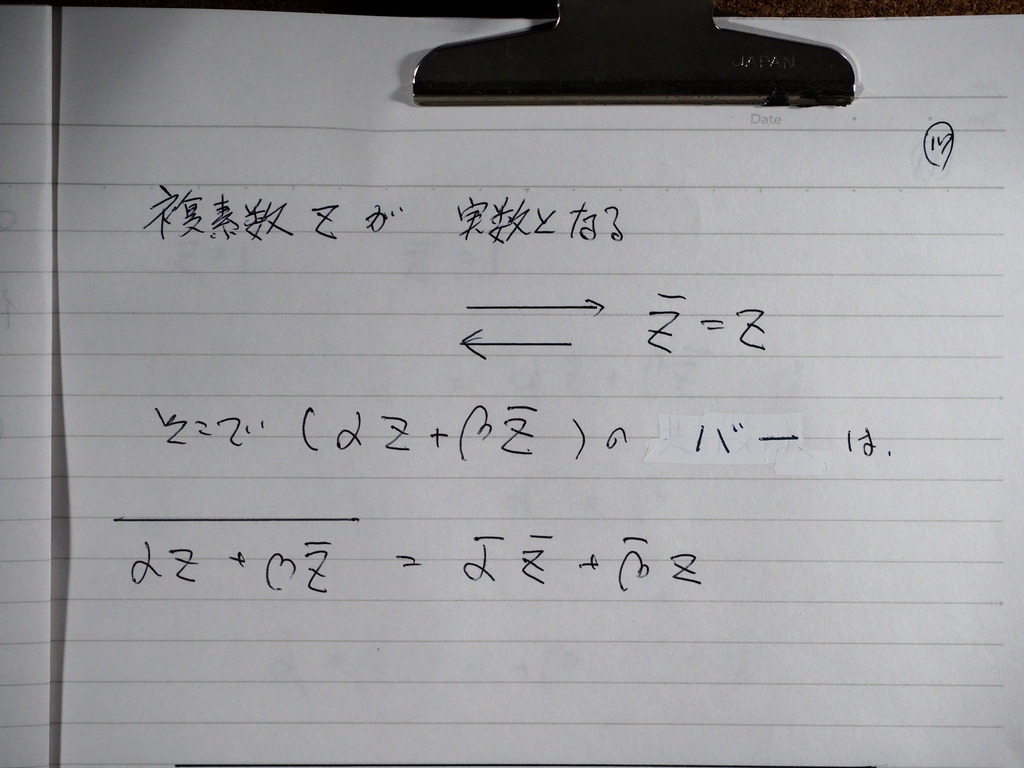 JAPAN
Date
複素数 z が 実数となる
⟶
⟵ z̄ = z
そこで (αz + βz̄) の バー は.
\overline{αz + βz̄} = ᾱ z̄ + β̄ z